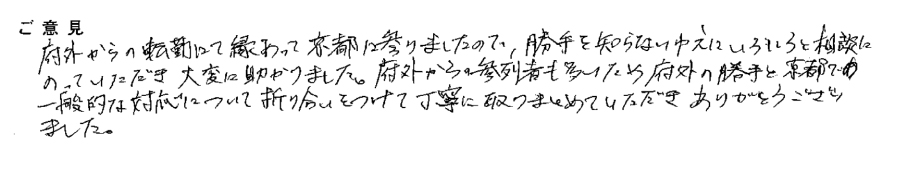 ご意見
府外からの転勤にて縁わって京都に参りましたので、勝手を知らないゆえにいろいろと相談に
のっていただき大変に助かりました。府外からの参列者も多いため府外の勝手と京都での
一般的な対応について折り合いをつけて丁寧に取りまとめていただきありがとうござい
ました。